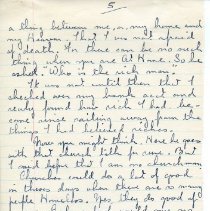 5
a thing between me in my home and
Heaven that I was not afraid
of death. For there can be no such
thing when you are At Home. So he
asked. Who is the rich man.
It was not till then that I
checked over my bank acct and
really found how rich I had be-
come since sailing away from the
things I had believed riches.
Now you might think. Here he goes
with that church talk for sure. But
I said before that I am no churchman.
Churches could do a lot of good
in theses days when there are so many
people Homeless. Yes, they do good of